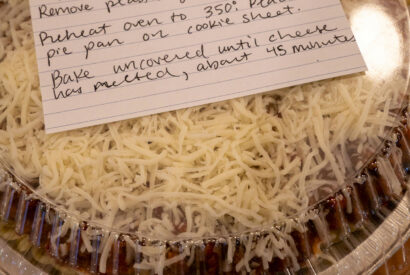 Remove
Preheat oven to 350°. Place
pie pan on cookie sheet.
Bake uncovered until cheese
has melted, about 45 minutes